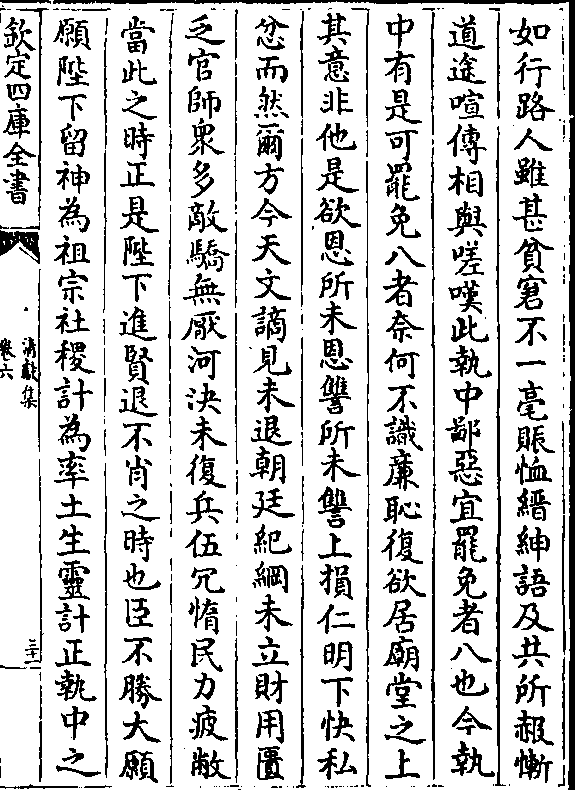 如行路人雖甚貧窘不一毫賑恤縉紳語及共所赧慚
道途喧傳相與嗟嘆此執中鄙惡宜罷免者八也今執
中有是可罷免八者奈何不識廉恥復欲居廟堂之上
其意非他是欲恩所未恩讐所未讐上損仁明下快私
忿而然爾方今天文謫見未退朝廷紀綱未立財用匱
乏官師衆多敵驕無厭河決未復兵伍冗惰民力疲敝
當此之時正是陛下進賢退不肖之時也臣不勝大願
願陛下留神為祖宗社稷計為率土生靈計正執中之
欽定四庫全書
清獻集
卷六
三十二